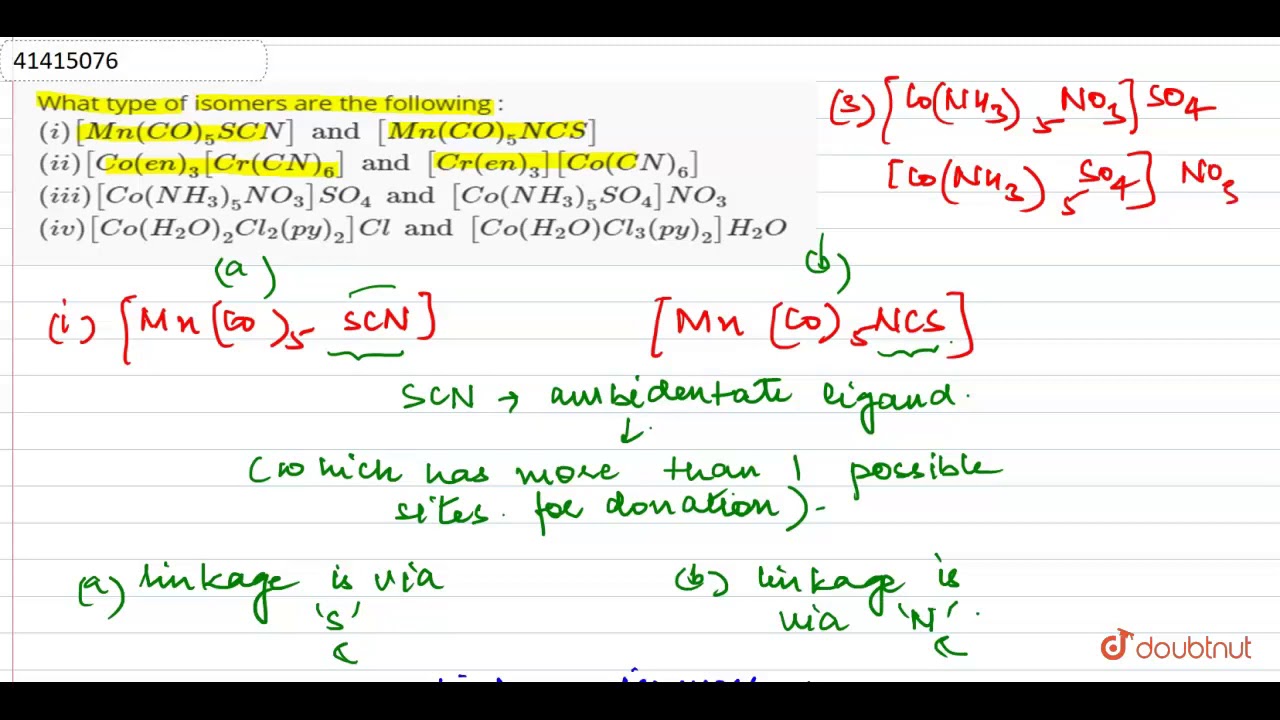 41415076
What type of isomers are the following :
(i) [Mn(CO)₅SCN] and [Mn(CO)₅NCS]
(ii) [Co(en)₃[Cr(CN)₆] and [Cr(en)₃][Co(CN)₆]
(iii) [Co(NH₃)₅NO₃]SO₄ and [Co(NH₃)₅SO₄]NO₃
(iv) [Co(H₂O)₂Cl₂(py)₂]Cl and [Co(H₂O)Cl₃(py)₂]H₂O
(3) [Co(NH₃)₅ NO₃] SO₄
[Co(NH₃)₅ SO₄] NO₃
(a) (b)
(i) [Mn(CO)₅ SCN] [Mn (CO)₅ NCS]
SCN → ambidentate ligand.
↓
(which has more than 1 possible
sites for donation).
(a) linkage is via 'S'
(b) linkage is via 'N'.
doubtnut